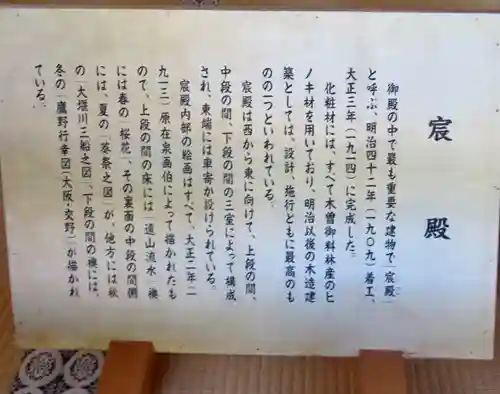 宸殿
御殿の中で最も重要な建物で「宸殿」
と呼ぶ、明治四十二年(一九〇九)着工、
大正三年(一九一四)に完成した。
化粧材には、すべて木曽御料林産のヒ
ノキ材を用いており、明治以後の木造建
築としては、設計、施行ともに最高のも
のの一つといわれている。
宸殿は西から東に向けて、上段の間、
中段の間、下段の間の三室によって構成
され、東端には車寄が設けられている。
宸殿内部の絵画はすべて、大正二年(一
九一三)原在泉画伯によって描かれたも
ので、上段の間の床には「遠山流水」襖
には春の「桜花」、その裏面の中段の間側
には、夏の「葵祭之図」が、他方には秋
の「大堰川三船之図」、下段の間の襖には、
冬の「鷹野行幸図(大阪・交野)」が描かれ
ている。